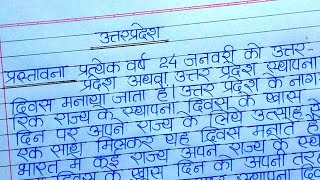 उत्तरप्रदेश
प्रस्तावना प्रत्येक वर्ष 24 जनवरी को उत्तर-
प्रदेश अथवा उत्तर प्रदेश स्थापना
दिवस मनाया जाता है। उत्तर प्रदेश के नाग-
रिक राज्य के स्थापना दिवस के खास
दिन पर अपने राज्य के लिये उत्साह से
एक साथ मिलकर यह दिवस मनाते हैं
भारत में कई राज्य अपने राज्य के स्थ
दिवस के खास दिन को अपनी तर
स्थापना दिवस